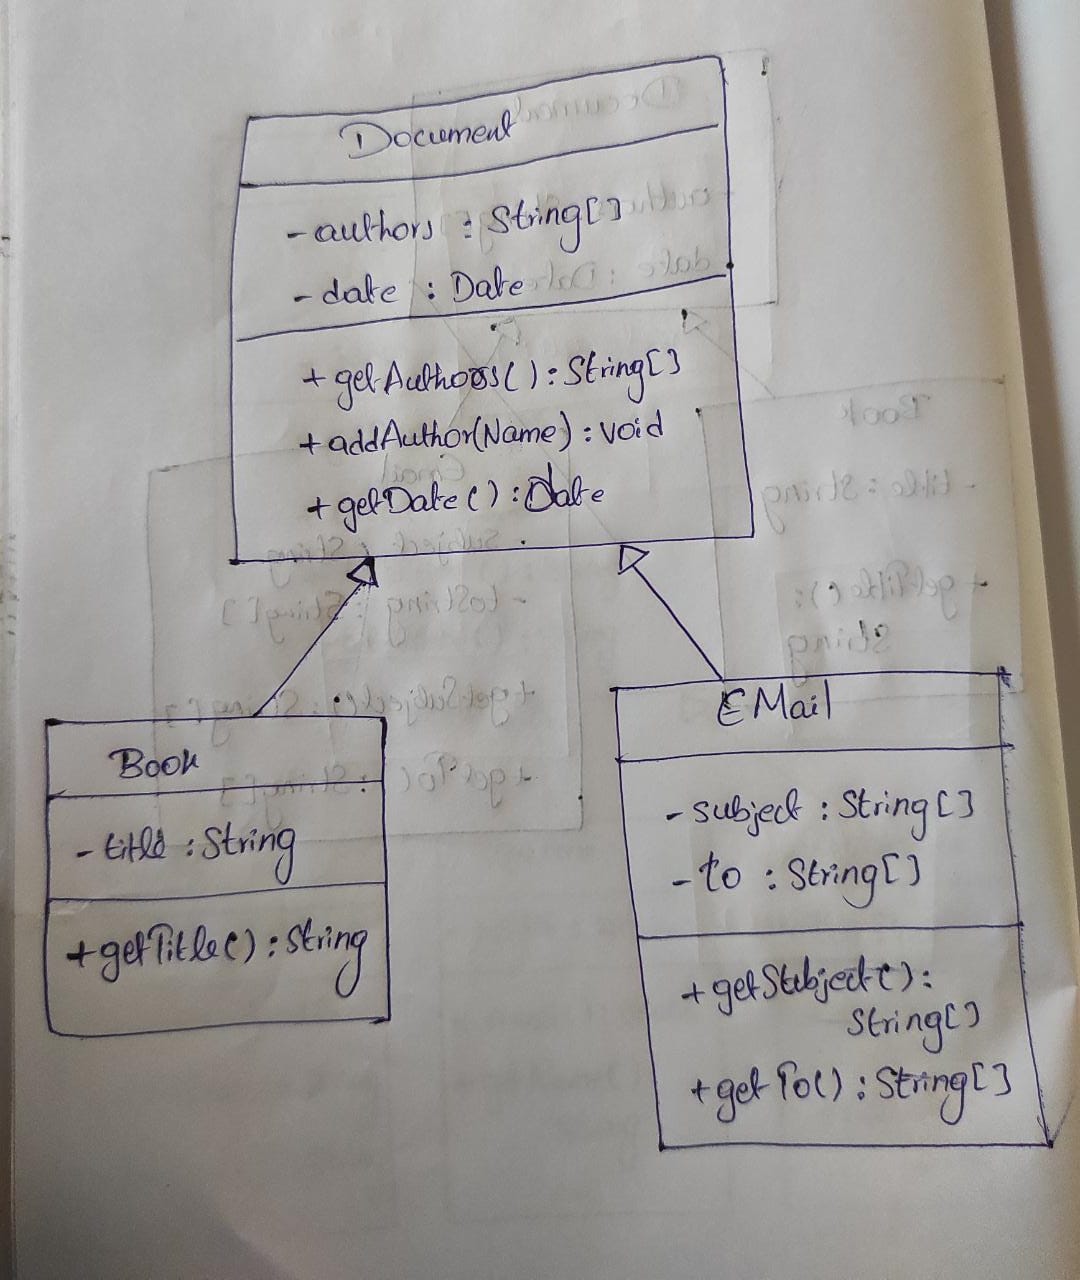 Document
- authors : String[]
- date : Date
+ getAuthors() : String[]
+ addAuthor(Name) : void
+ getDate() : Date
Book
- title : String
+ getTitle() : String
EMail
- subject : String[]
- to : String[]
+ getSubject() :
String[]
+ getTo() : String[]